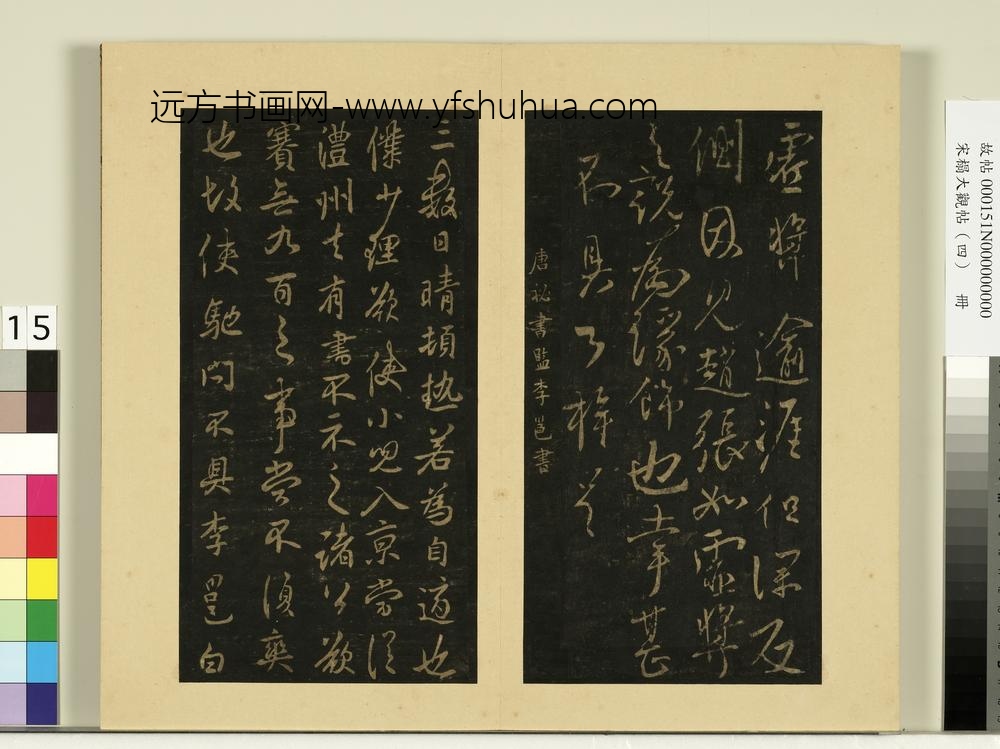 远方书画网-www.yfshuhua.com
虚 獎 逾 涯 但 深 反
側 因 見 趙 張 如 虚 獎
之 說 為 緣 飾 也 幸 甚
不 具 了
唐 祕 書 監 李 邕 書
三 數 日 晴 頓 熱 若 為 自 適 也
僕 少 理 欲 使 小 兒 入 京 當 從
澧 州 去 有 書 示 之 諸 公 欲
賽 無 九 百 之 事 當 不 須 與
也 故 使 馳 問 不 具 李 邕 白
故帖 000151N000000000
宋榻大觀帖（四） 冊
15